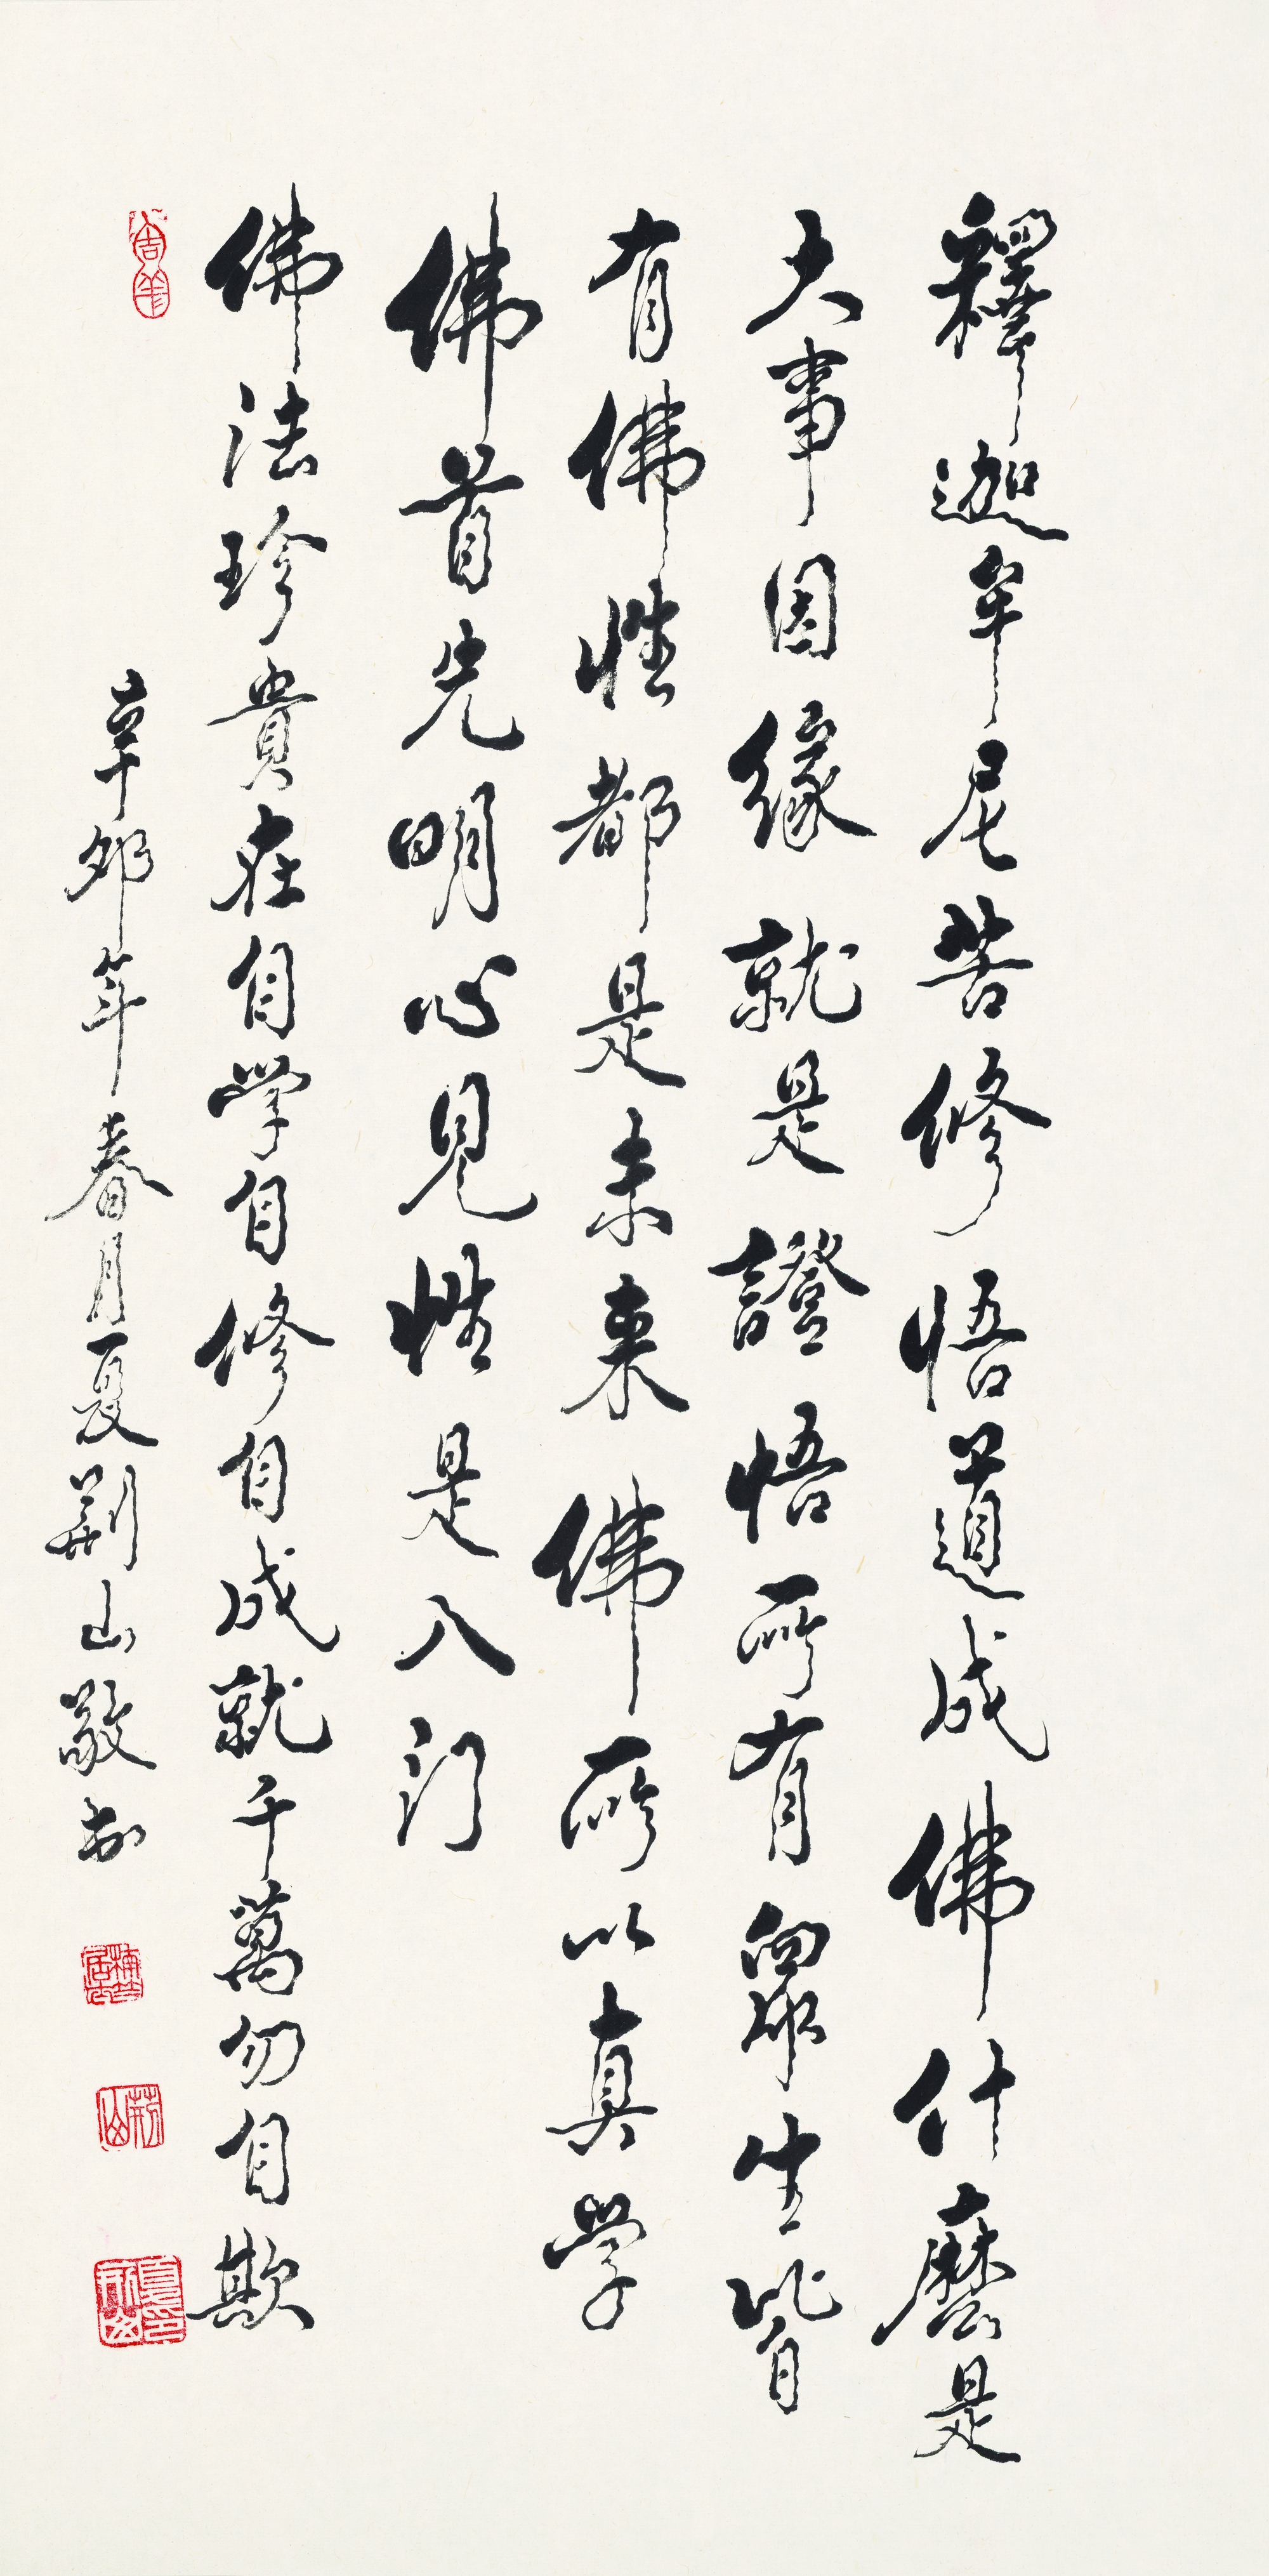 釋迦牟尼苦修悟道成佛什麽是
大事因緣就是證悟所有眾生皆
有佛性都是未來佛所以真學
佛首先明心見性是入门
佛法珍貴在自學自修自成就千萬勿自欺
辛卯年春月夏荆山敬书